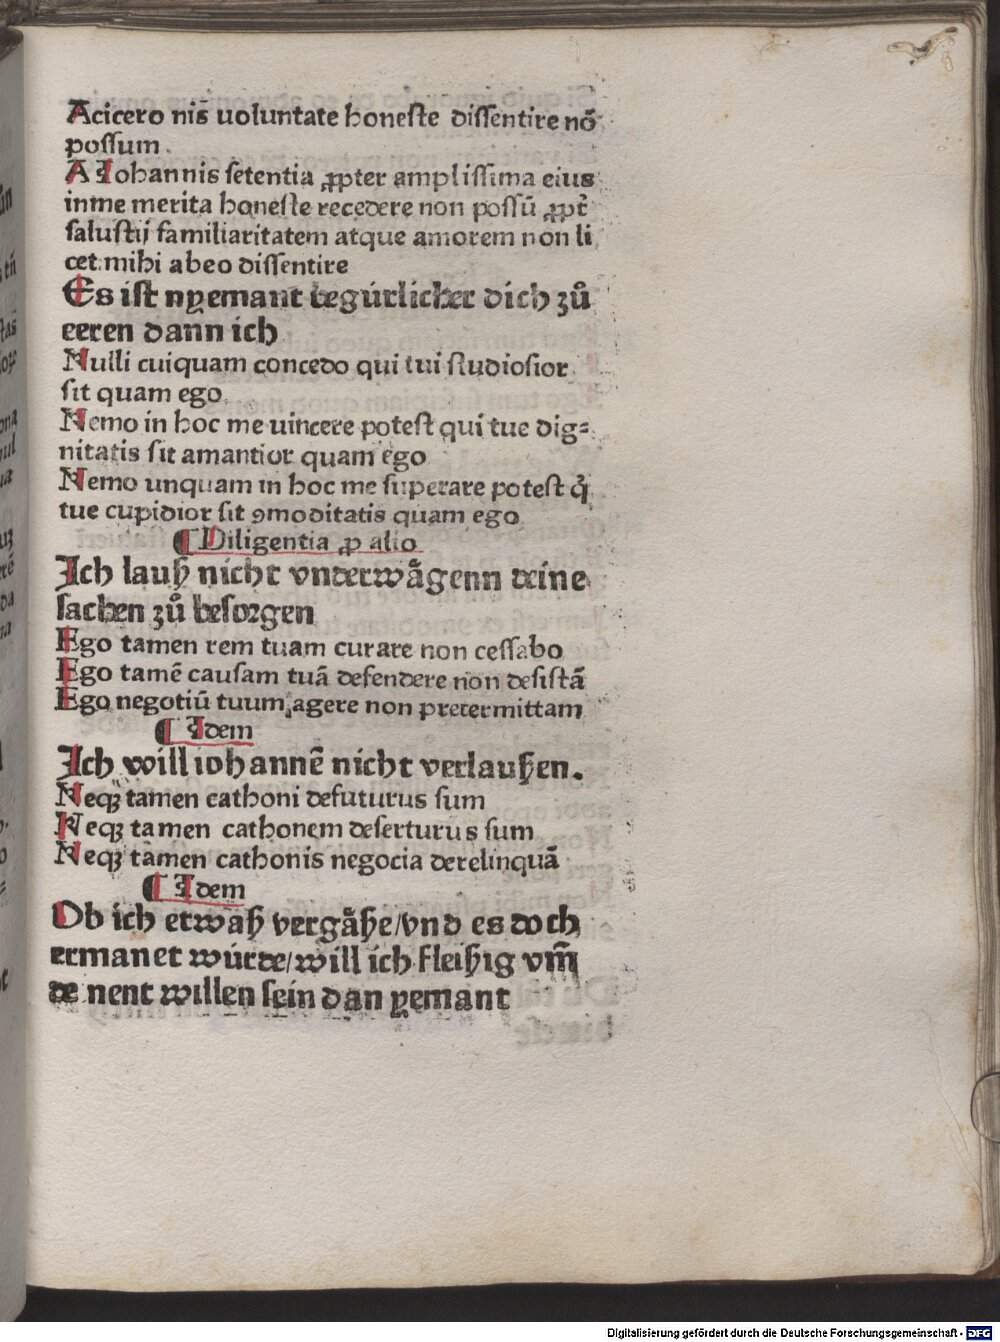 Acicero nis̄ uoluntate honeste dissentire nō
possum.
A Iohannis setentia ꝓpter amplissima eius
inme merita honeste recedere non possū ꝓpt̄
salustij familiaritatem atque amorem non li
cet mihi abeo dissentire
Es ist nyemant begúrlicher dich zů
eeren dann ich
Nulli cuiquam concedo qui tui studiosior
sit quam ego
Nemo in hoc me uincere potest qui tue dig⸗
nitatis sit amantior quam ego
Nemo unquam in hoc me superare potest q̇
tue cupidior sit ꝯmoditatis quam ego
¶ Diligentia ꝓ alio
Ich lauß nicht vnderwågenn deine
sachen zů besorgen
Ego tamen rem tuam curare non cessabo
Ego tamē causam tuā defendere non desistā
Ego negotiū tuum agere non pretermittam
¶ Idem
Ich will iohannē nicht verlaußen.
Neqꝫ tamen cathoni defuturus sum
Neqꝫ tamen cathonem deserturus sum
Neqꝫ tamen cathonis negocia derelinquā
¶ Idem
Ob ich etwaß vergåße/vnd es doch
ermanet wúrde/will ich fleißig vm̄
de nent willen sein dan yemant
Digitalisierung gefördert durch die Deutsche Forschungsgemeinschaft - DFG